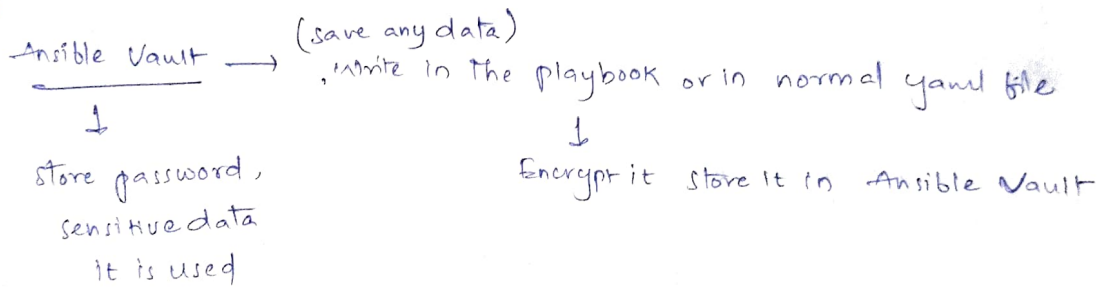 Ansible Vault → (save any data)
, write in the playbook or in normal yaml file
↓
store password,
sensitive data
it is used
↓
Encrypt it store it in Ansible Vault